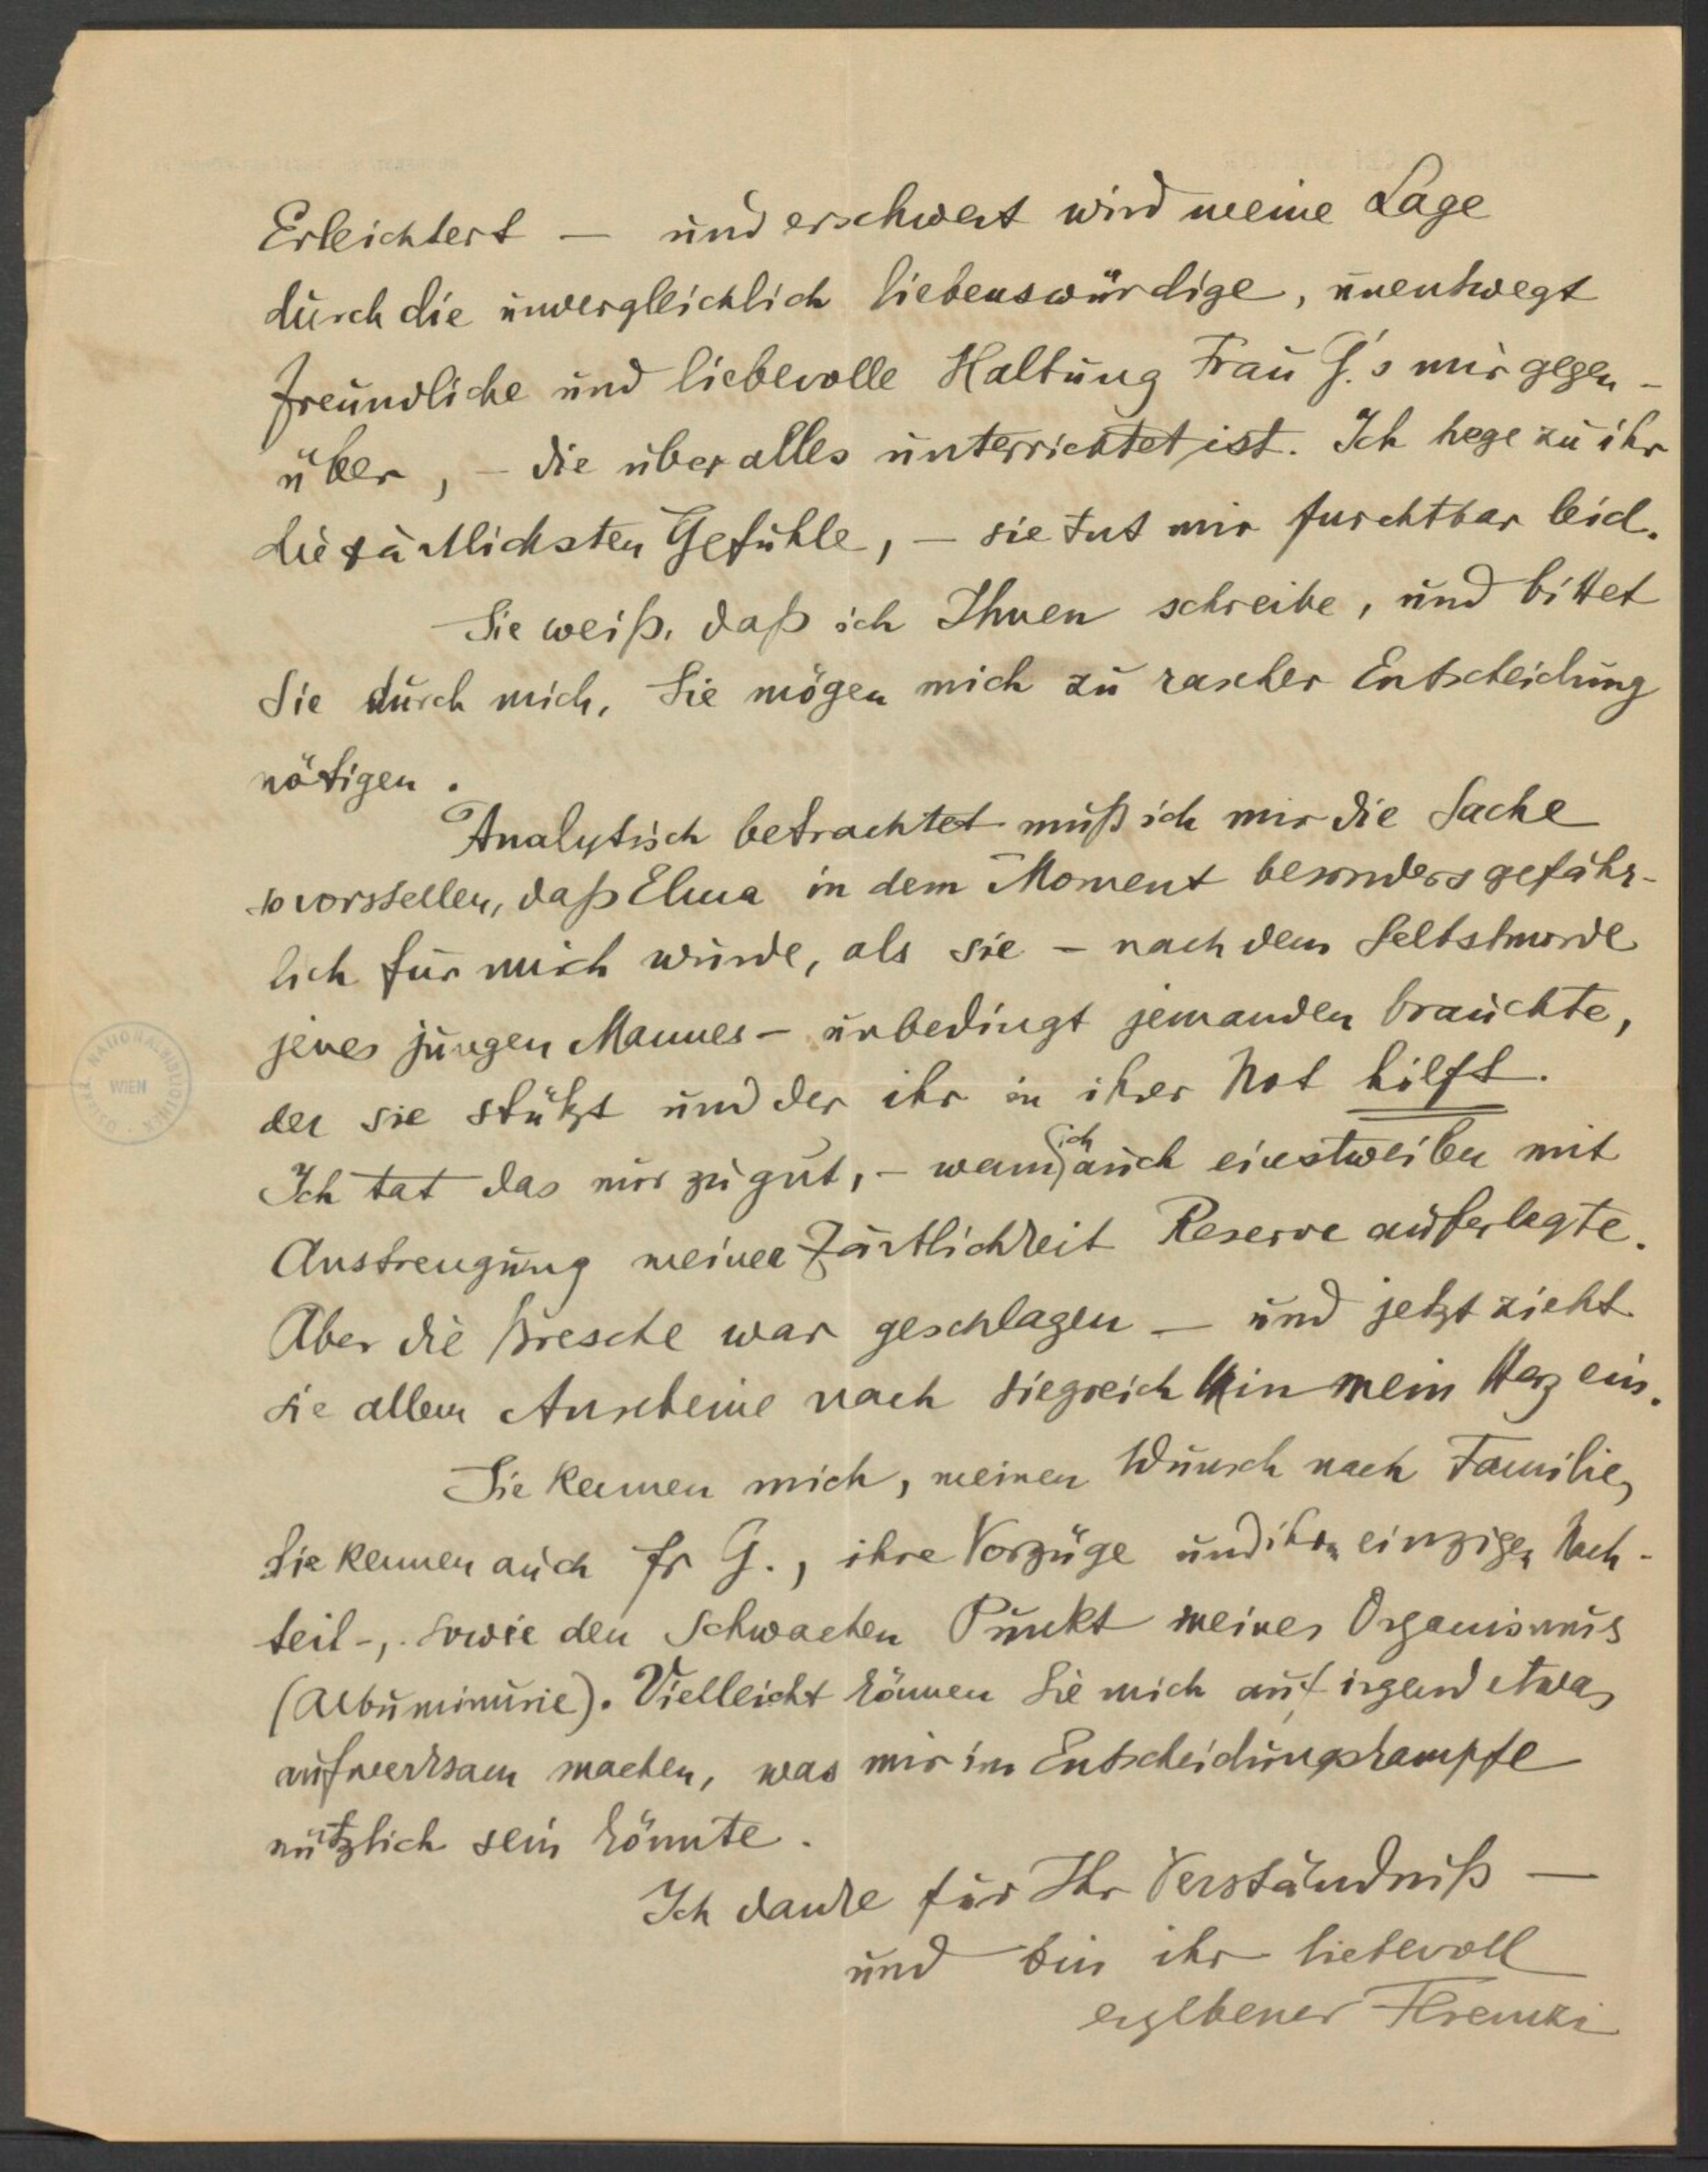 Erleichtert — und erschwert wird meine Lage
durch die unvergleichlich liebenswürdige, unentwegt
freundliche und liebevolle Haltung Frau G.'s mir gegen-
über, – die über alles unterrichtet ist. Ich hege zu ihr
die zärtlichsten Gefühle, – sie tut mir furchtbar leid.
Sie weiß, daß ich Ihnen schreibe, und bittet
Sie durch mich, Sie mögen mich zu rascher Entscheidung
nötigen.
Analytisch betrachtet muß ich mir die Sache
so vorstellen, daß Elma in dem Moment besonders gefähr-
lich für mich wurde, als sie – nach dem Selbstmorde
jenes jungen Mannes – unbedingt jemanden brauchte,
der sie stützt und der ihr in ihrer Not hilft.
Ich tat das nur zu gut, – wenn ich auch einstweilen mit
Anstrengung meiner Zärtlichkeit Reserve auferlegte.
Aber die Bresche war geschlagen – und jetzt zieht
sie allem Anscheine nach siegreich in mein Herz ein.
Sie kennen mich, meinen Wunsch nach Familie,
Sie kennen auch Fr G., ihre Vorzüge und ihren einzigen Nach-
teil-, sowie den schwachen Punkt meines Organismus
(Albuminurie). Vielleicht können Sie mich auf irgend etwas
aufmerksam machen, was mir im Entscheidungskampfe
nützlich sein könnte.
Ich danke für Ihr Verständniß —
und bin ihr liebevoll
ergebener Ferenczi
WIEN